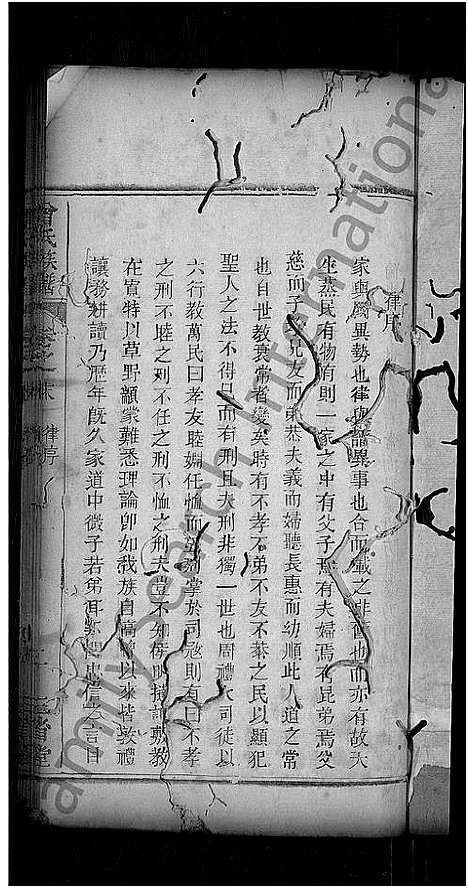 律序
家與國異勢也律與譜異事也合而載之非舊也而亦有故夫
生蒸民有物有則一家之中有父子焉有夫婦焉有昆弟焉父
慈而子孝兄友而弟恭夫義而婦聽長惠而幼順此人道之常
也自世教衰常者變矣時有不孝不弟不友不恭之民以顯犯
聖人之法不得已而有刑且夫刑非獨一世也周禮大司徒以
六行教萬民曰孝友睦婣任恤而 掌於司寇則有曰不孝
之刑不睦之刑不任之刑不恤之刑夫豈不知 敷教
在寬特以草野顓蒙難悉理論卽如我族自高 以來皆敦禮
讓務耕讀乃歷年旣久家道中微子若弟耳 忠信之言目
曾氏族譜
卷之末
律序
三省堂
Family Search International